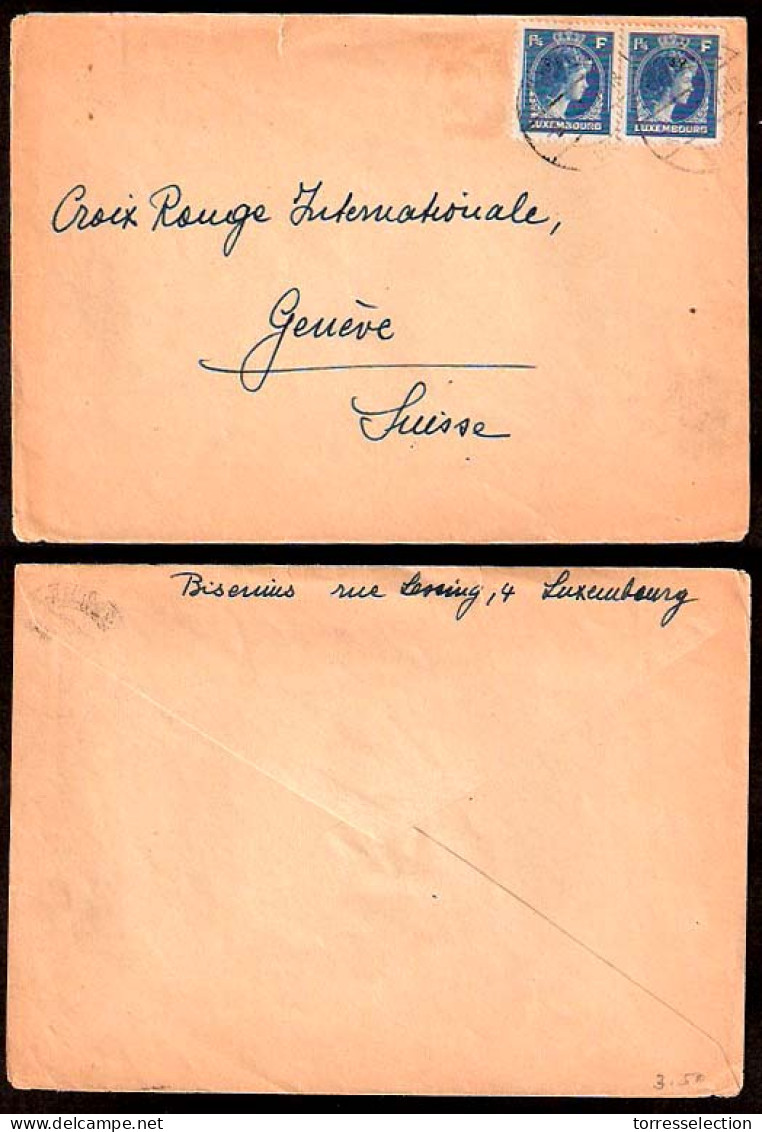 1¾ F 1¾ F
LUXEMBOURG LUXEMBOURG
Croix Rouge Internationale,
Genève
Suisse
Bisenius rue Lessing, 4 Luxembourg
3.50
torresselection